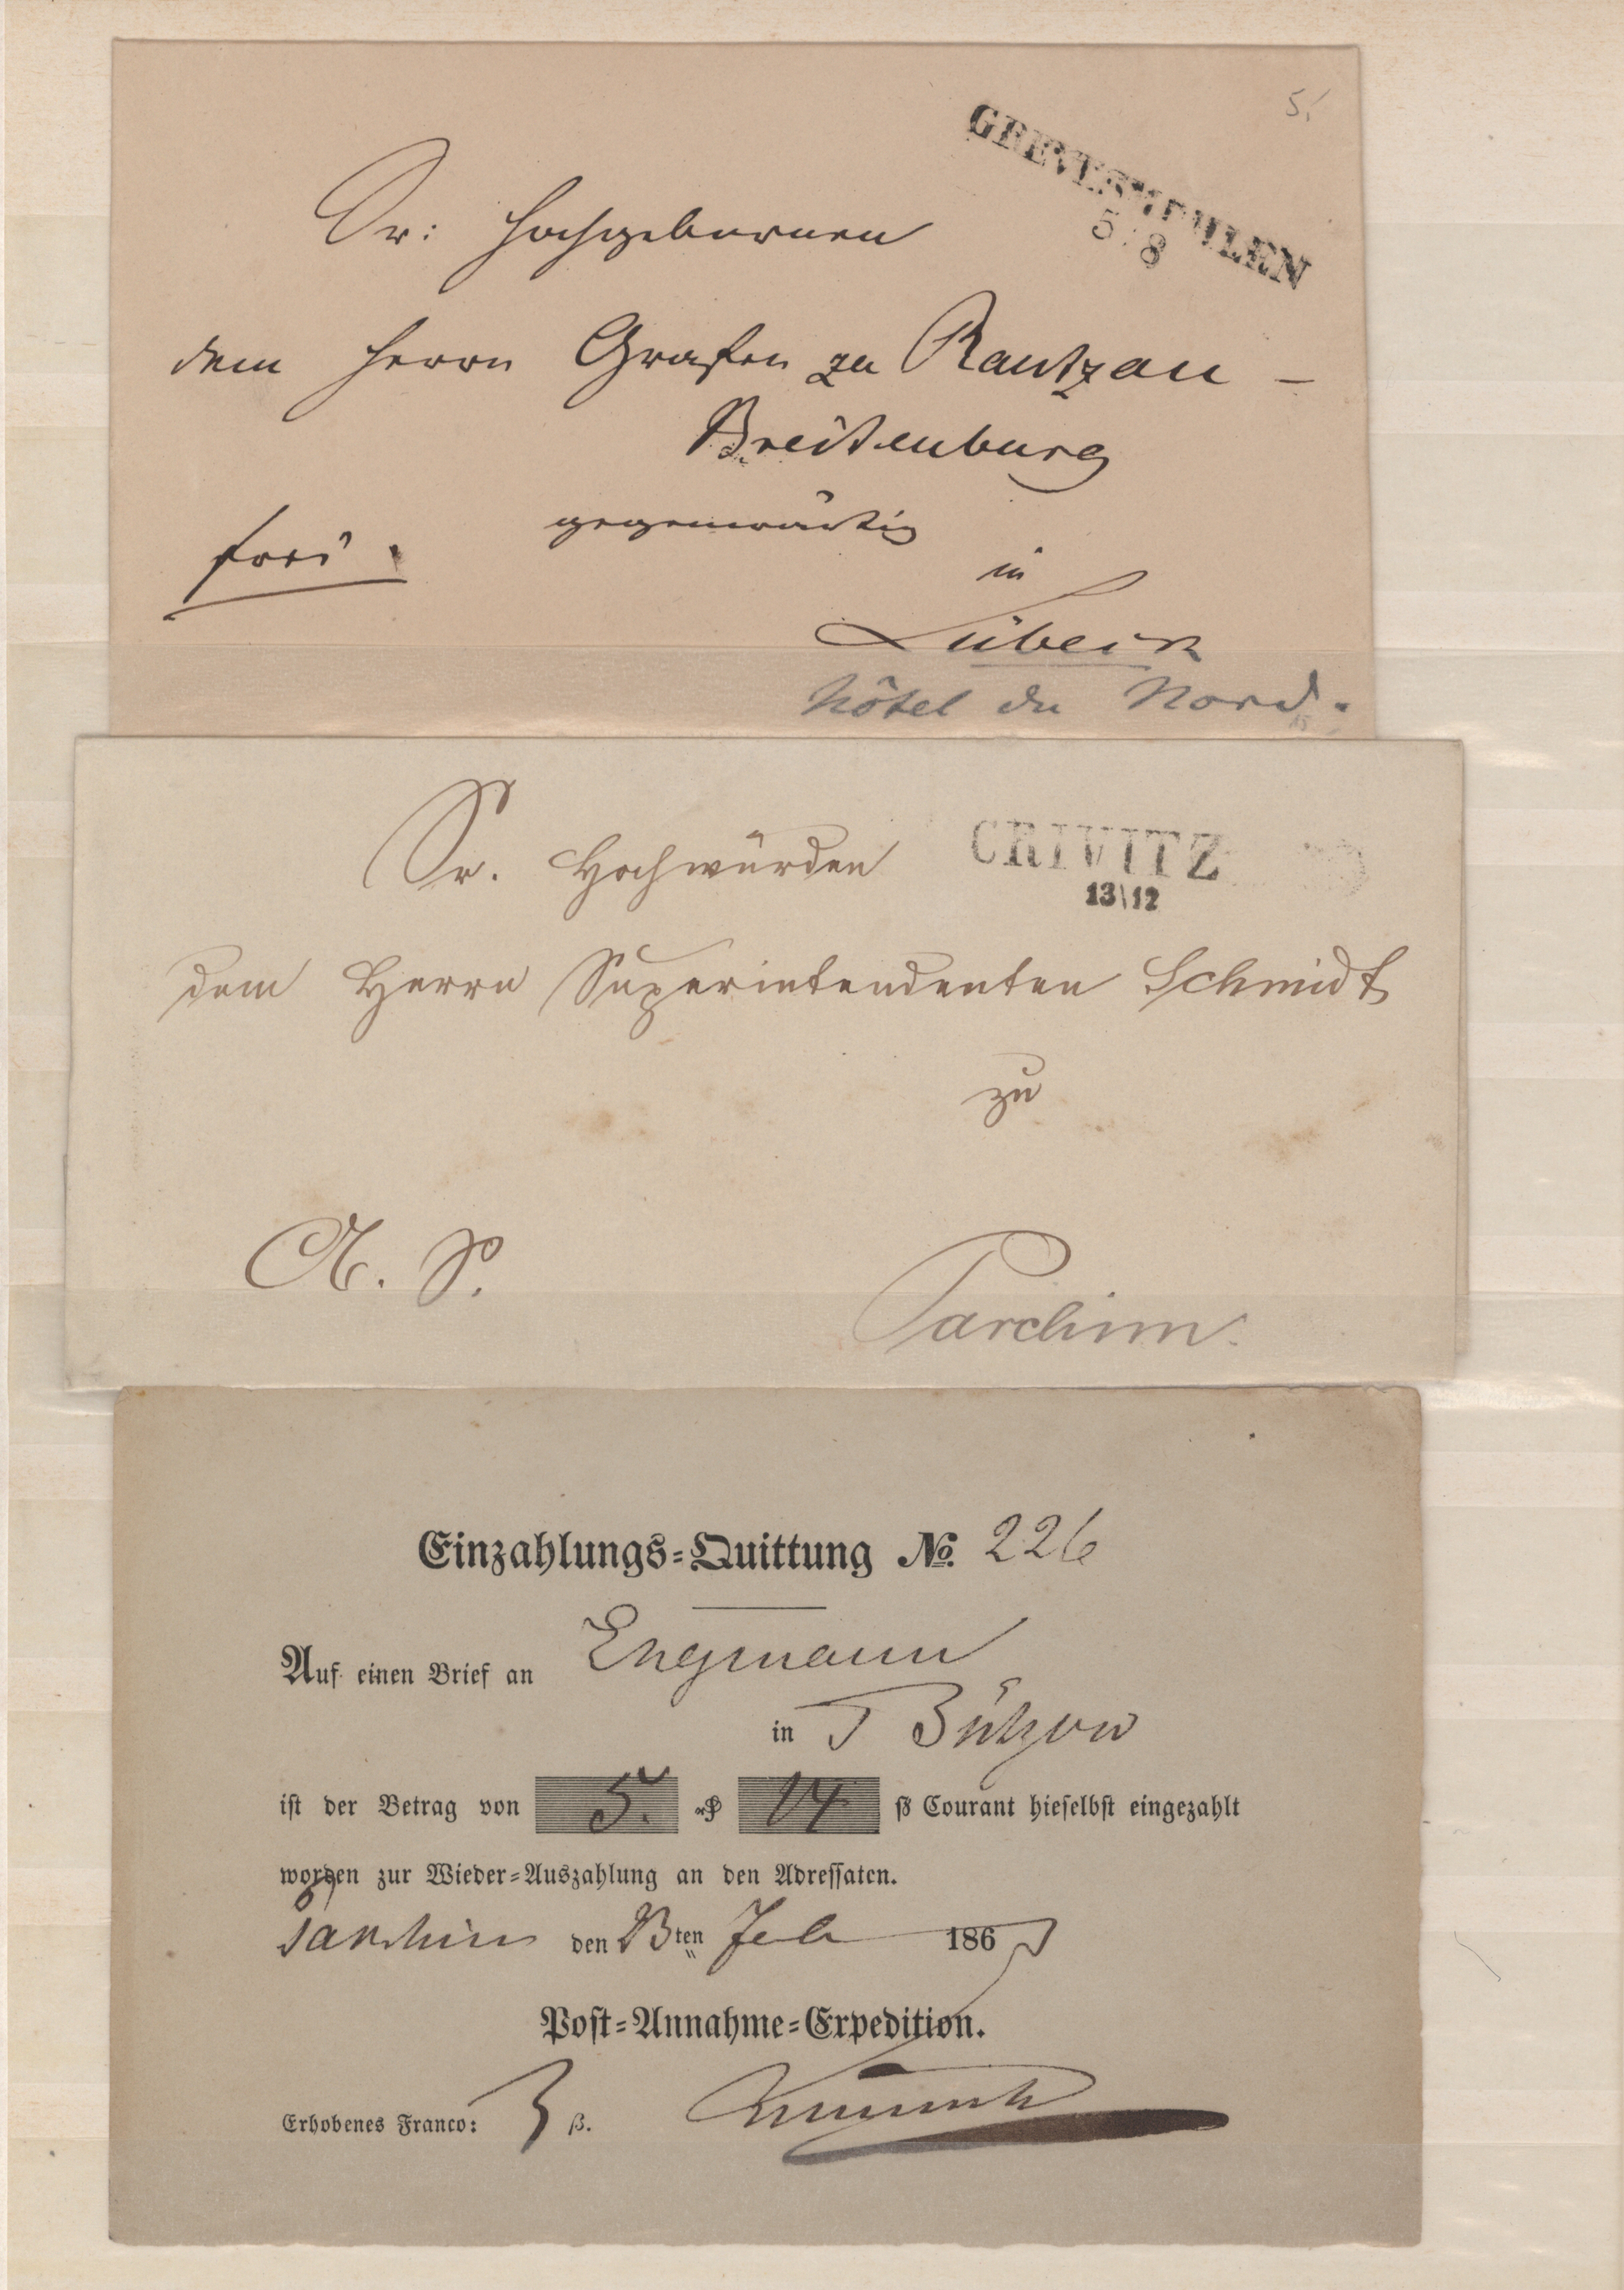 5.
GREVESMÜHLEN
5 8
Sr: Hochgebornen
dem Herrn Grafen zu Rantzau -
Breitenburg
gegenwärtig
frei.
in
Lübeck
Hôtel du Nord.
Sr. Hochwürden
CRIVITZ
13\12
dem Herrn Superintendenten Schmidt
zu
Parchim.
Einzahlungs-Quittung No. 226
Auf einen Brief an Engmann
in Bützow
ist der Betrag von 5. 14 ß Courant hieselbst eingezahlt
worden zur Wieder-Auszahlung an den Adressaten.
Parchim den 23ten Feb 186
Post-Annahme-Expedition.
Erhobenes Franco: 3 ß.